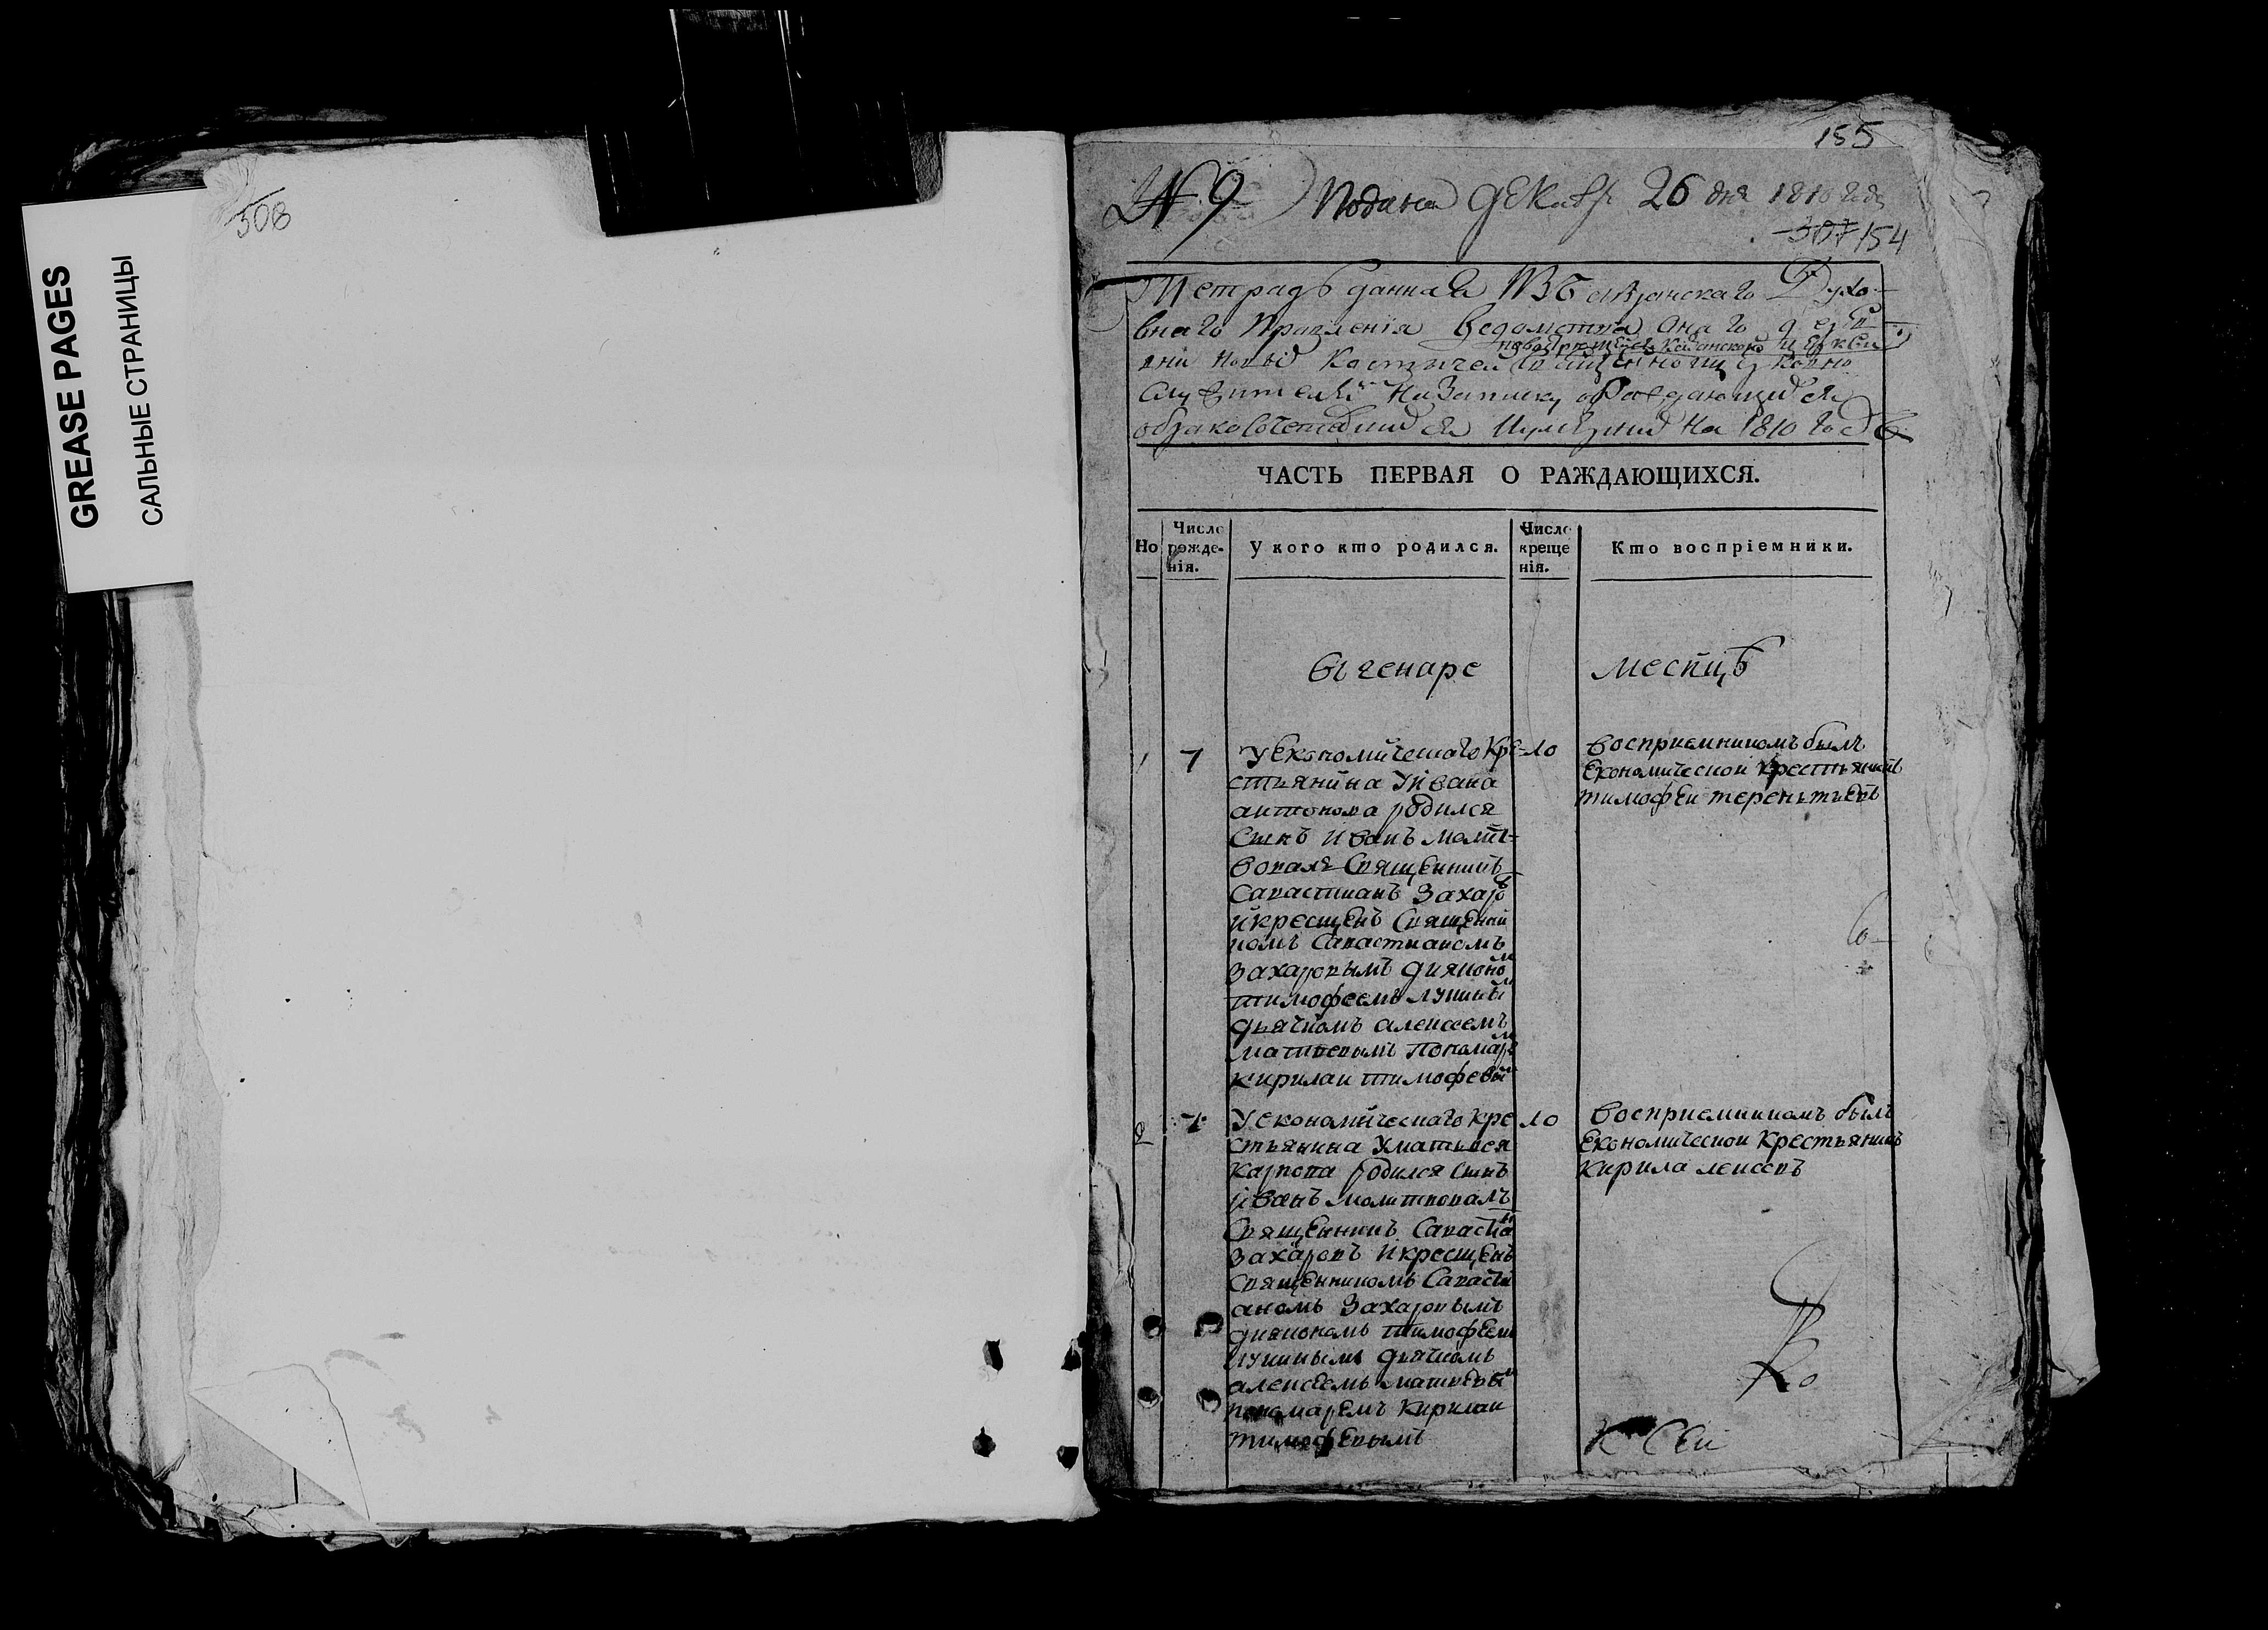 GREASE PAGES
САЛЬНЫЕ СТРАНИЦЫ
308
155
№ 9 Подана декабр 26 дня 1810 года
307 154
Тетрадь данная Изъ сызранскаго Духо-
внаго Правленія Ведомства онаго дерев-
новопостроенной Казанской церкви
ни Новых Костычей священно и церковно
служителям На Записку о Раждающихся
обракосочетавшихся И умерших На 1810 Годъ
ЧАСТЬ ПЕРВАЯ О РАЖДАЮЩИХСЯ.
Но
Число рожденія.
У кого кто родился.
Число крещенія.
Кто воспріемники.
въ генаре месяцъ
1 7 У Економическаго Кре- 10
стьянина Уивана
антонова родился
Сынъ Иванъ молит-
вовалъ Священникъ
Савастианъ Захаровъ
и крещенъ Священни
комъ Савастианомъ
Захаровымъ дияконом
тимофеемъ лукиным
дьячкомъ алексеемъ
матвеевымъ Пономарем
кирилаи тимофевым
восприемникомъ былъ
Економической крестьянинъ
тимофеи терентьевъ
2 7 У економическаго кре 10
стьянина Уматвея
Карпова родился сынъ
иванъ молитвовалъ
Священникъ Савастиан
Захаровъ и крещенъ
священникомъ Савасти
аномъ Захаровымъ
дияконом тимофеем
лукиным дьячкомъ
алексеемъ матвевым
пономаремъ Кирилаи
тимофевымъ
восприемникомъ былъ
Економической Крестьянинъ
Кирила лексевъ
Ко
К Сеи